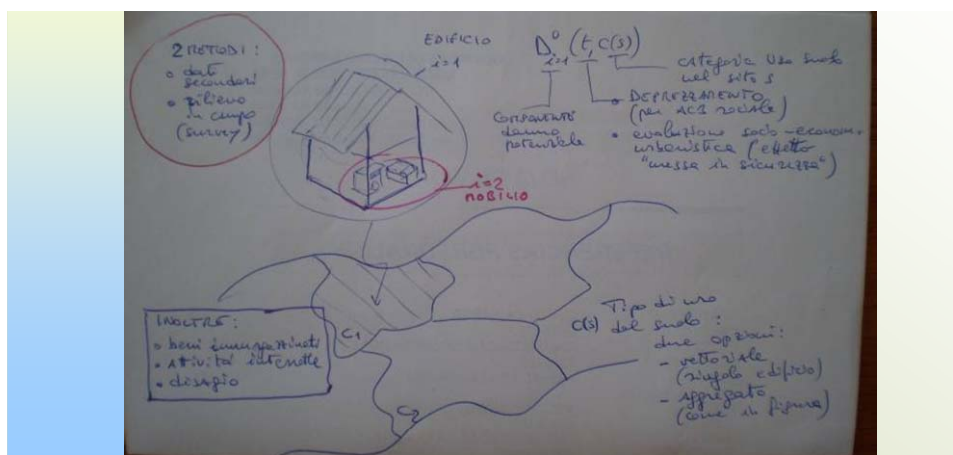 2 METODI:
• dati
secondari
• rilievo
in campo
(survey)
EDIFICIO
i=1
D⁰i=1 (t, c(s))
categoria uso suolo
nel sito s
• DEPREZZAMENTO
(per ACB sociale)
• evoluzione socio-econom.
urbanistica (effetto
"messa in sicurezza")
COMPONENTE
danno
potenziale
i=2
MOBILIO
INOLTRE:
• beni immagazzinati
• attività interrotte
• disagio
C1
C2
C(s) Tipo di uso
del suolo:
due opzioni:
- vettoriale
(singolo edificio)
- aggregato
(come in figura)